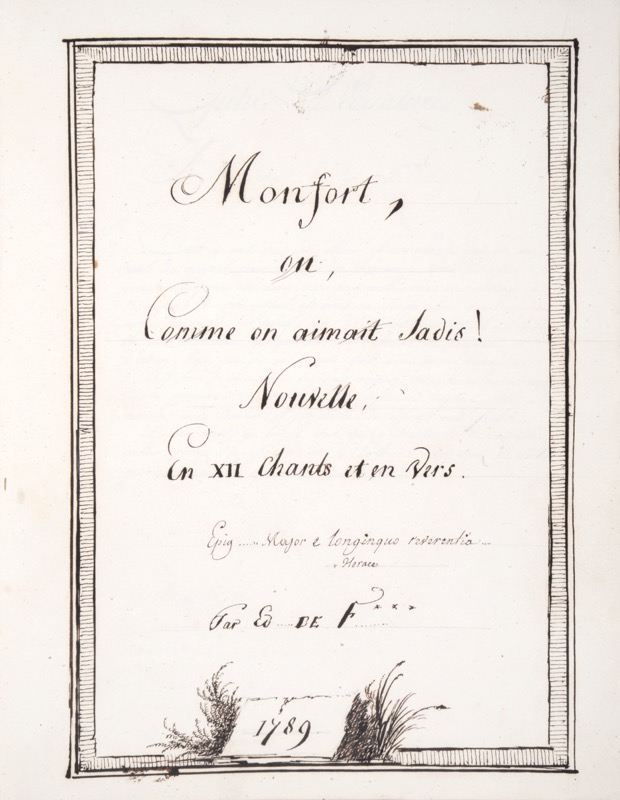 Monfort,
ou,
Comme on aimait Jadis!
Nouvelle,
En XII Chants et en Vers.
Epig ..... Major e longinquo reverentia ...
Horace
Par Ed ..... DE F***
1789